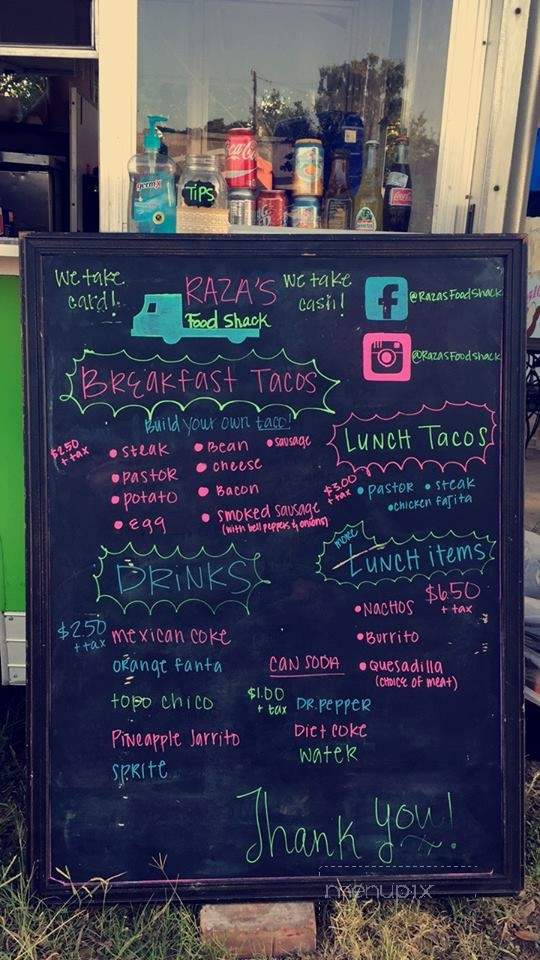 germx
TIPS
Coca-Cola
We take
card!
RAZA'S
Food Shack
We take
cash!
@RazasFoodShack
@RazasFoodshack
Breakfast Tacos
Build your own taco!
$2.50
+ tax
• steak
• Bean
• sausage
• pastor
• cheese
• potato
• Bacon
• egg
• smoked sausage
(with bell peppers & onions)
Lunch Tacos
$3.00
+ tax
• pastor • steak
• chicken fajita
Drinks
more
Lunch items
$6.50
+ tax
• Nachos
• Burrito
• Quesadilla
(choice of meat)
$2.50
+ tax
mexican coke
orange fanta
topo chico
Pineapple Jarrito
sprite
can soda
$1.00
+ tax
DR. pepper
Diet coke
water
Thank you!
menupix